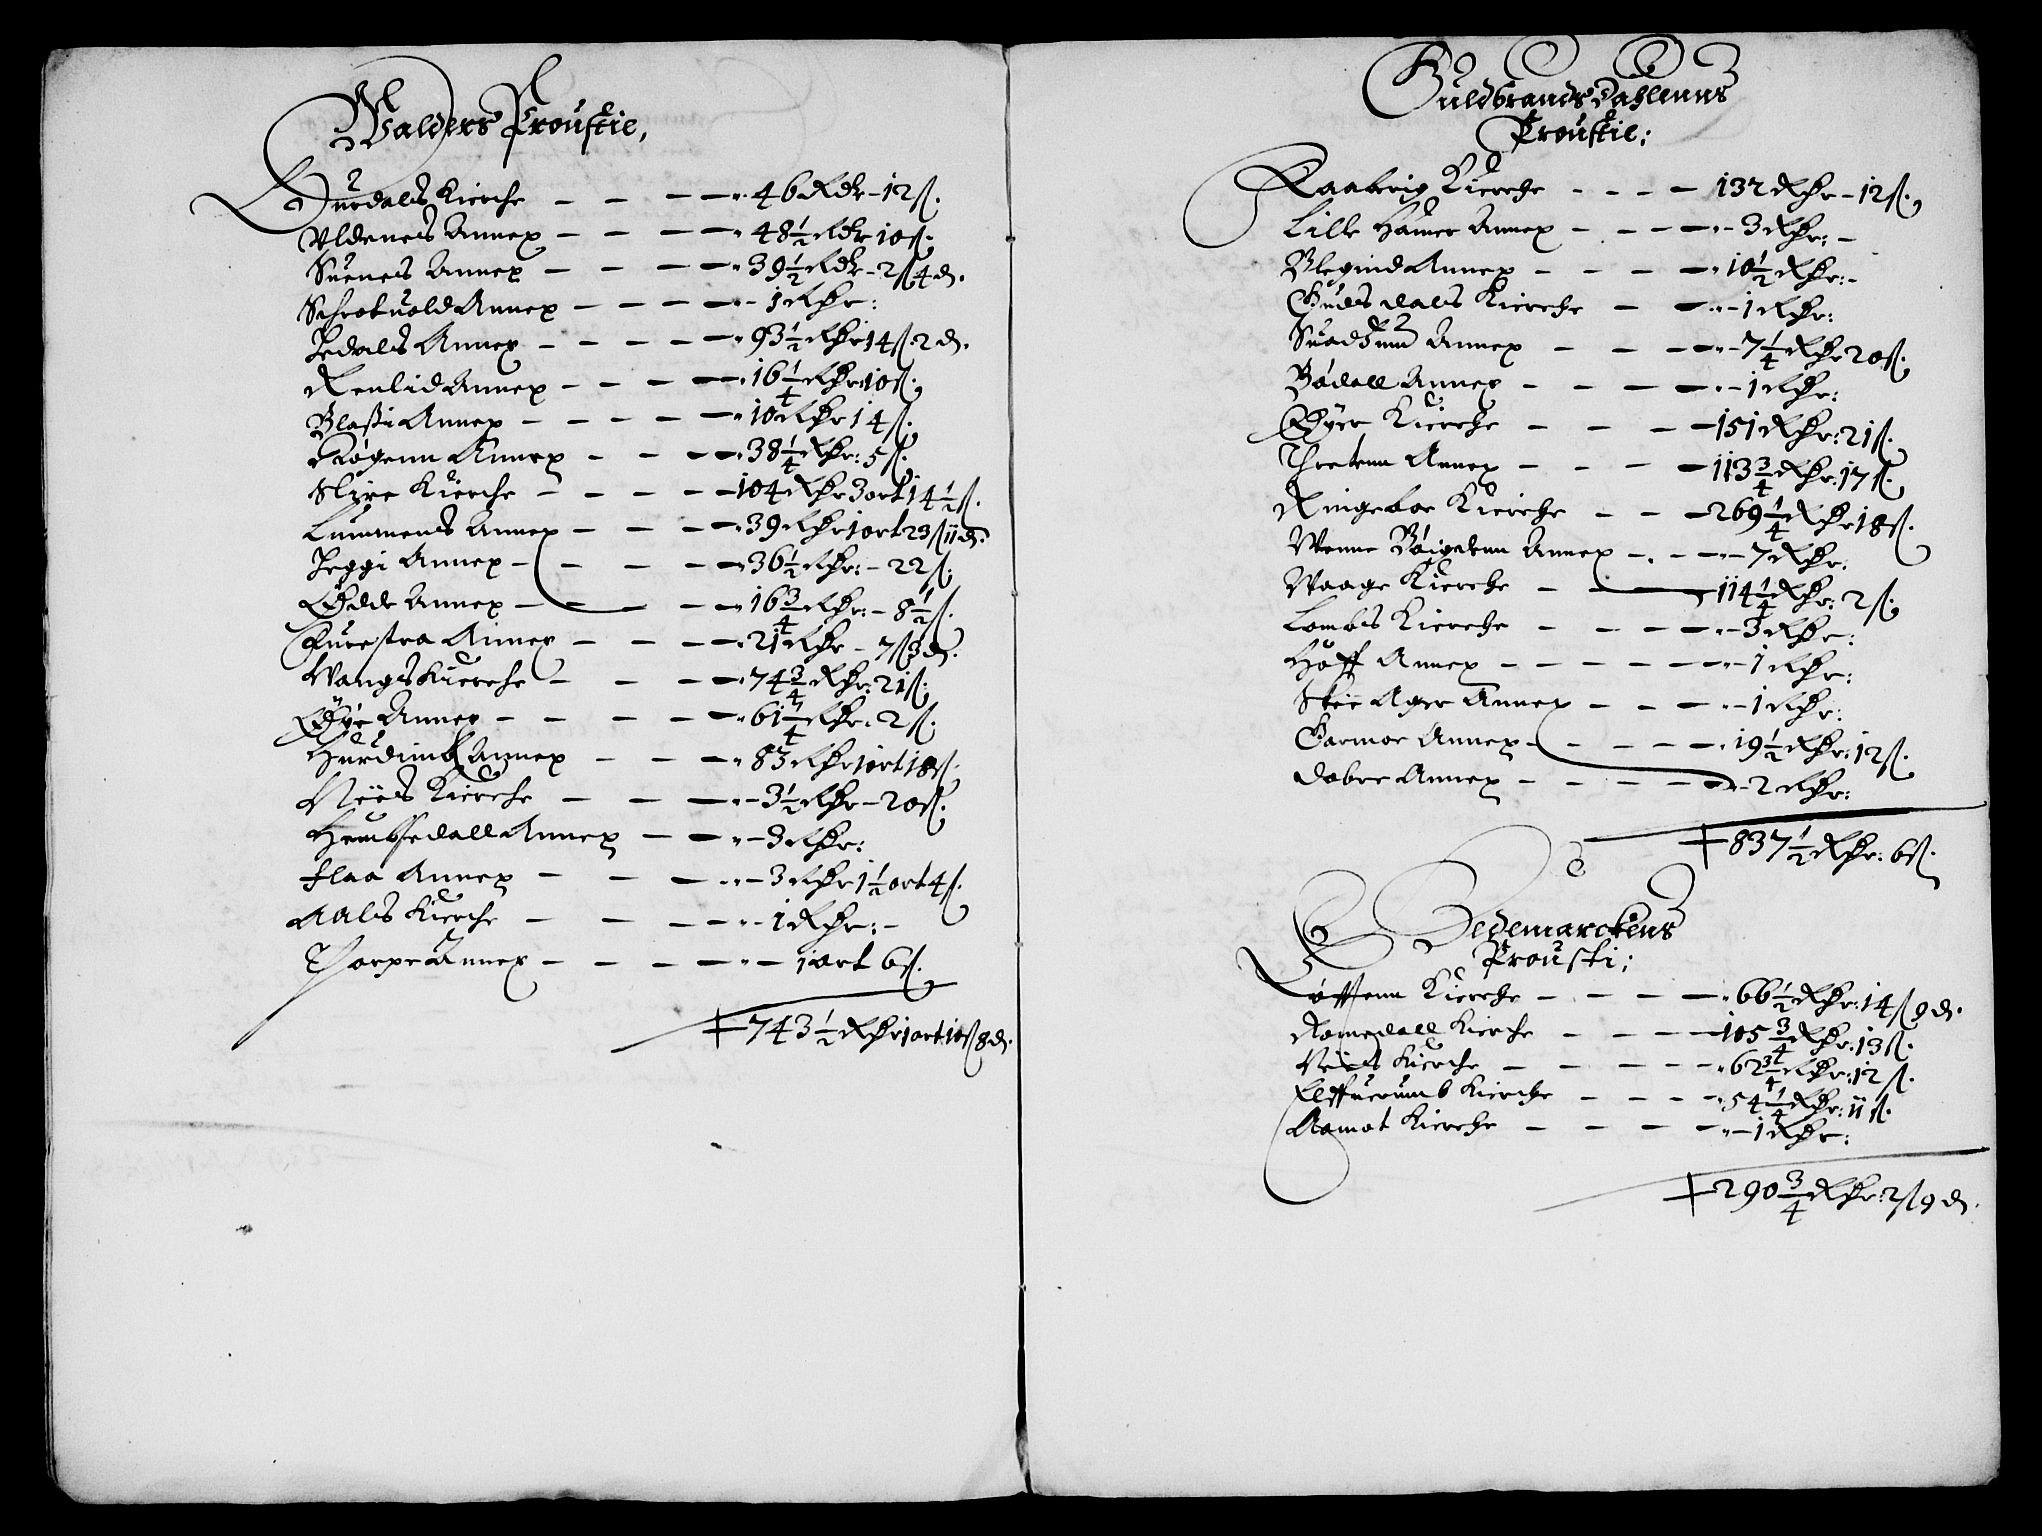 Walders Proustie,
Hurdals Kirche — — — 46 Rdr - 12 ß.
Uldenes Annex — — — 48 1/2 Rdr 10 ß.
Suenes Annex — — — 39 1/2 Rdr - 2 ß 4 d.
Schrotuold Annex — — — 1 Rdr:
Hedals Annex — — — 93 1/2 Rdr 14 ß 2 d.
Renlid Annex — — — 16 1/4 Rdr 10 ß.
Blassi Annex — — — 10 Rdr 14 ß.
Røgenn Annex — — — 38 1/4 Rdr: 5 ß.
Slyre Kierche — — — 104 Rdr 3 ort 14 1/2 ß.
Lummens Annex — — — 39 Rdr 1 ort 23 ß 11 d.
Heggi Annex — — — 36 1/2 Rdr: - 22 ß.
Ødde Annex — — — 16 3/4 Rdr: - 8 1/2 ß.
Annex — — — 21 Rdr - 7 ß 3 d.
Wangs Kierche — — — 74 3/4 Rdr: 21 ß.
Øye Annex — — — 61 1/4 Rdr: 2 ß.
Hurdimb Annex — — — 83 Rdr 1 ort 18 ß.
Nees Kierche — — — 3 1/2 Rdr - 20 ß.
Hembsedall Annex — — 3 Rdr:
Flaa Annex — — — 3 Rdr 1 1/2 ort 4 ß.
Aals Kirche — — — 1 Rdr: -
Thorpe Annex — — — 1 ort 6 ß.
743 1/2 Rdr 1 ort 10 ß 8 d.
Guldbrands Dahlenns
Proustie:
Faabrig Kierche — — — 132 Rdr - 12 ß.
Lille Hamer Annex — — — 3 Rdr: -
Annex — — — 10 1/2 Rdr: -
Gudsdals Kierche — — 1 Rdr:
Suadzum Annex — — — 7 1/4 Rdr 20 ß.
Bødall Annex — — — 1 Rdr:
Øyer Kierche — — — 151 Rdr: 21 ß.
Thretenn Annex — — — 113 3/4 Rdr: 17 ß.
Ringeboe Kierche — — 269 1/4 Rdr 18 ß.
Wenne Bøigdenn Annex — — 7 Rdr:
Waage Kierche — — 114 1/4 Rdr: 2 ß.
Lombs Kierche — — — 3 Rdr:
Hoff Annex — — — 1 Rdr:
Skee Ager Annex — — — 1 Rdr:
Garmoe Annex — — — 19 1/2 Rdr: 12 ß.
Dobre Annex — — — 2 Rdr:
837 1/2 Rdr: 6 ß.
Hedemarckens
Prousti:
Løffenn Kierche — — — 66 1/2 Rdr: 14 ß 9 d.
Romedall Kierche — — — 105 3/4 Rdr: 13 ß.
Nees Kierche — — — 62 3/4 Rdr: 12 ß.
Elffuerumb Kierche — — — 54 1/4 Rdr: 11 ß.
Aamot Kierche — — — 1 Rdr:
290 3/4 Rdr: 2 ß 9 d.